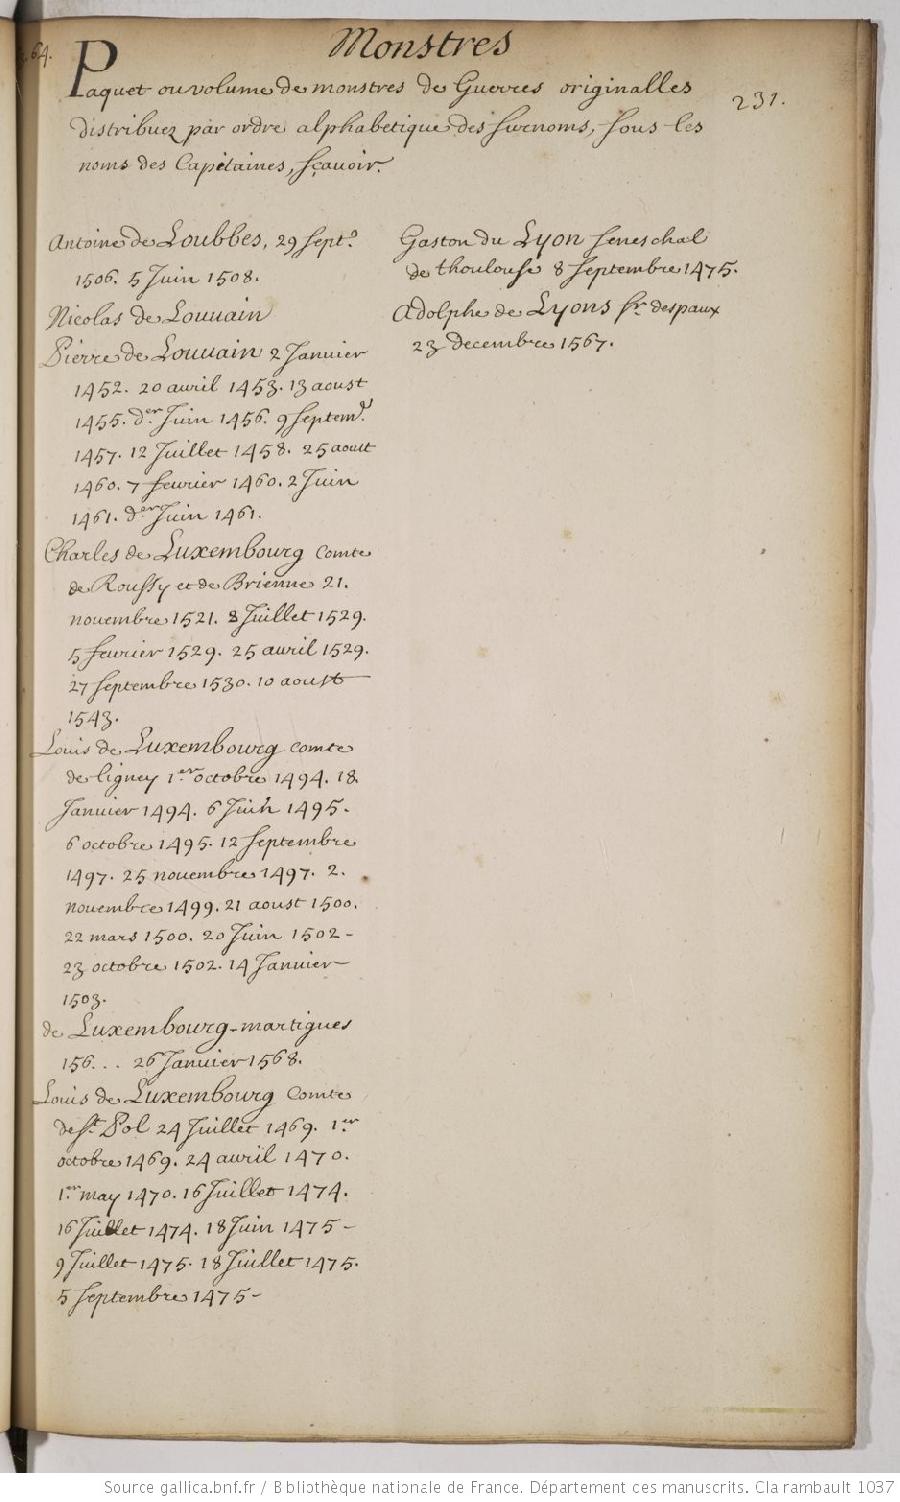 64.
Monstres
Paquet ou volume de monstres de Guerres originalles
231.
distribuez par ordre alphabetique des surnoms, sous les
noms des Capitaines, sçavoir.
Antoine de Loubbes, 29 Sept.e
1506. 5 Juin 1508.
Nicolas de Louuain
Pierre de Louuain 2 Januier
1452. 20 auril 1453. 13 aoust
1455. d.er Juin 1456. 9 Septem.
1457. 12 Juillet 1458. 25 aoust
1460. 7 feurier 1460. 2 Juin
1461. d.er Juin 1461.
Charles de Luxembourg Comte
de Roussy et de Brienne 21.
nouembre 1521. 8 Juillet 1529.
5 feurier 1529. 25 auril 1529.
27 Septembre 1530. 10 aoust
1543.
Louis de Luxembourg Comte
de ligney 1.er octobre 1494. 18
Januier 1494. 6 Juin 1495.
6 octobre 1495. 12 Septembre
1497. 25 nouembre 1497. 2.
nouembre 1499. 21 aoust 1500.
22 mars 1500. 20 Juin 1502-
23 octobre 1502. 14 Januier
1503.
de Luxembourg-martigues
156... 26 Januier 1568.
Louis de Luxembourg Comte
de St. Pol 24 Juillet 1469. 1.er
octobre 1469. 24 auril 1470.
1.er may 1470. 16 Juillet 1474.
16 Juillet 1474. 18 Juin 1475-
9 Juillet 1475. 18 Juillet 1475.
5 Septembre 1475-
Gaston du Lyon Seneschal
de thoulouse 8 Septembre 1475.
Adolphe de Lyons Sr. despaux
23 decembre 1567.
Source gallica.bnf.fr / Bibliothèque nationale de France. Département des manuscrits. Clairambault 1037